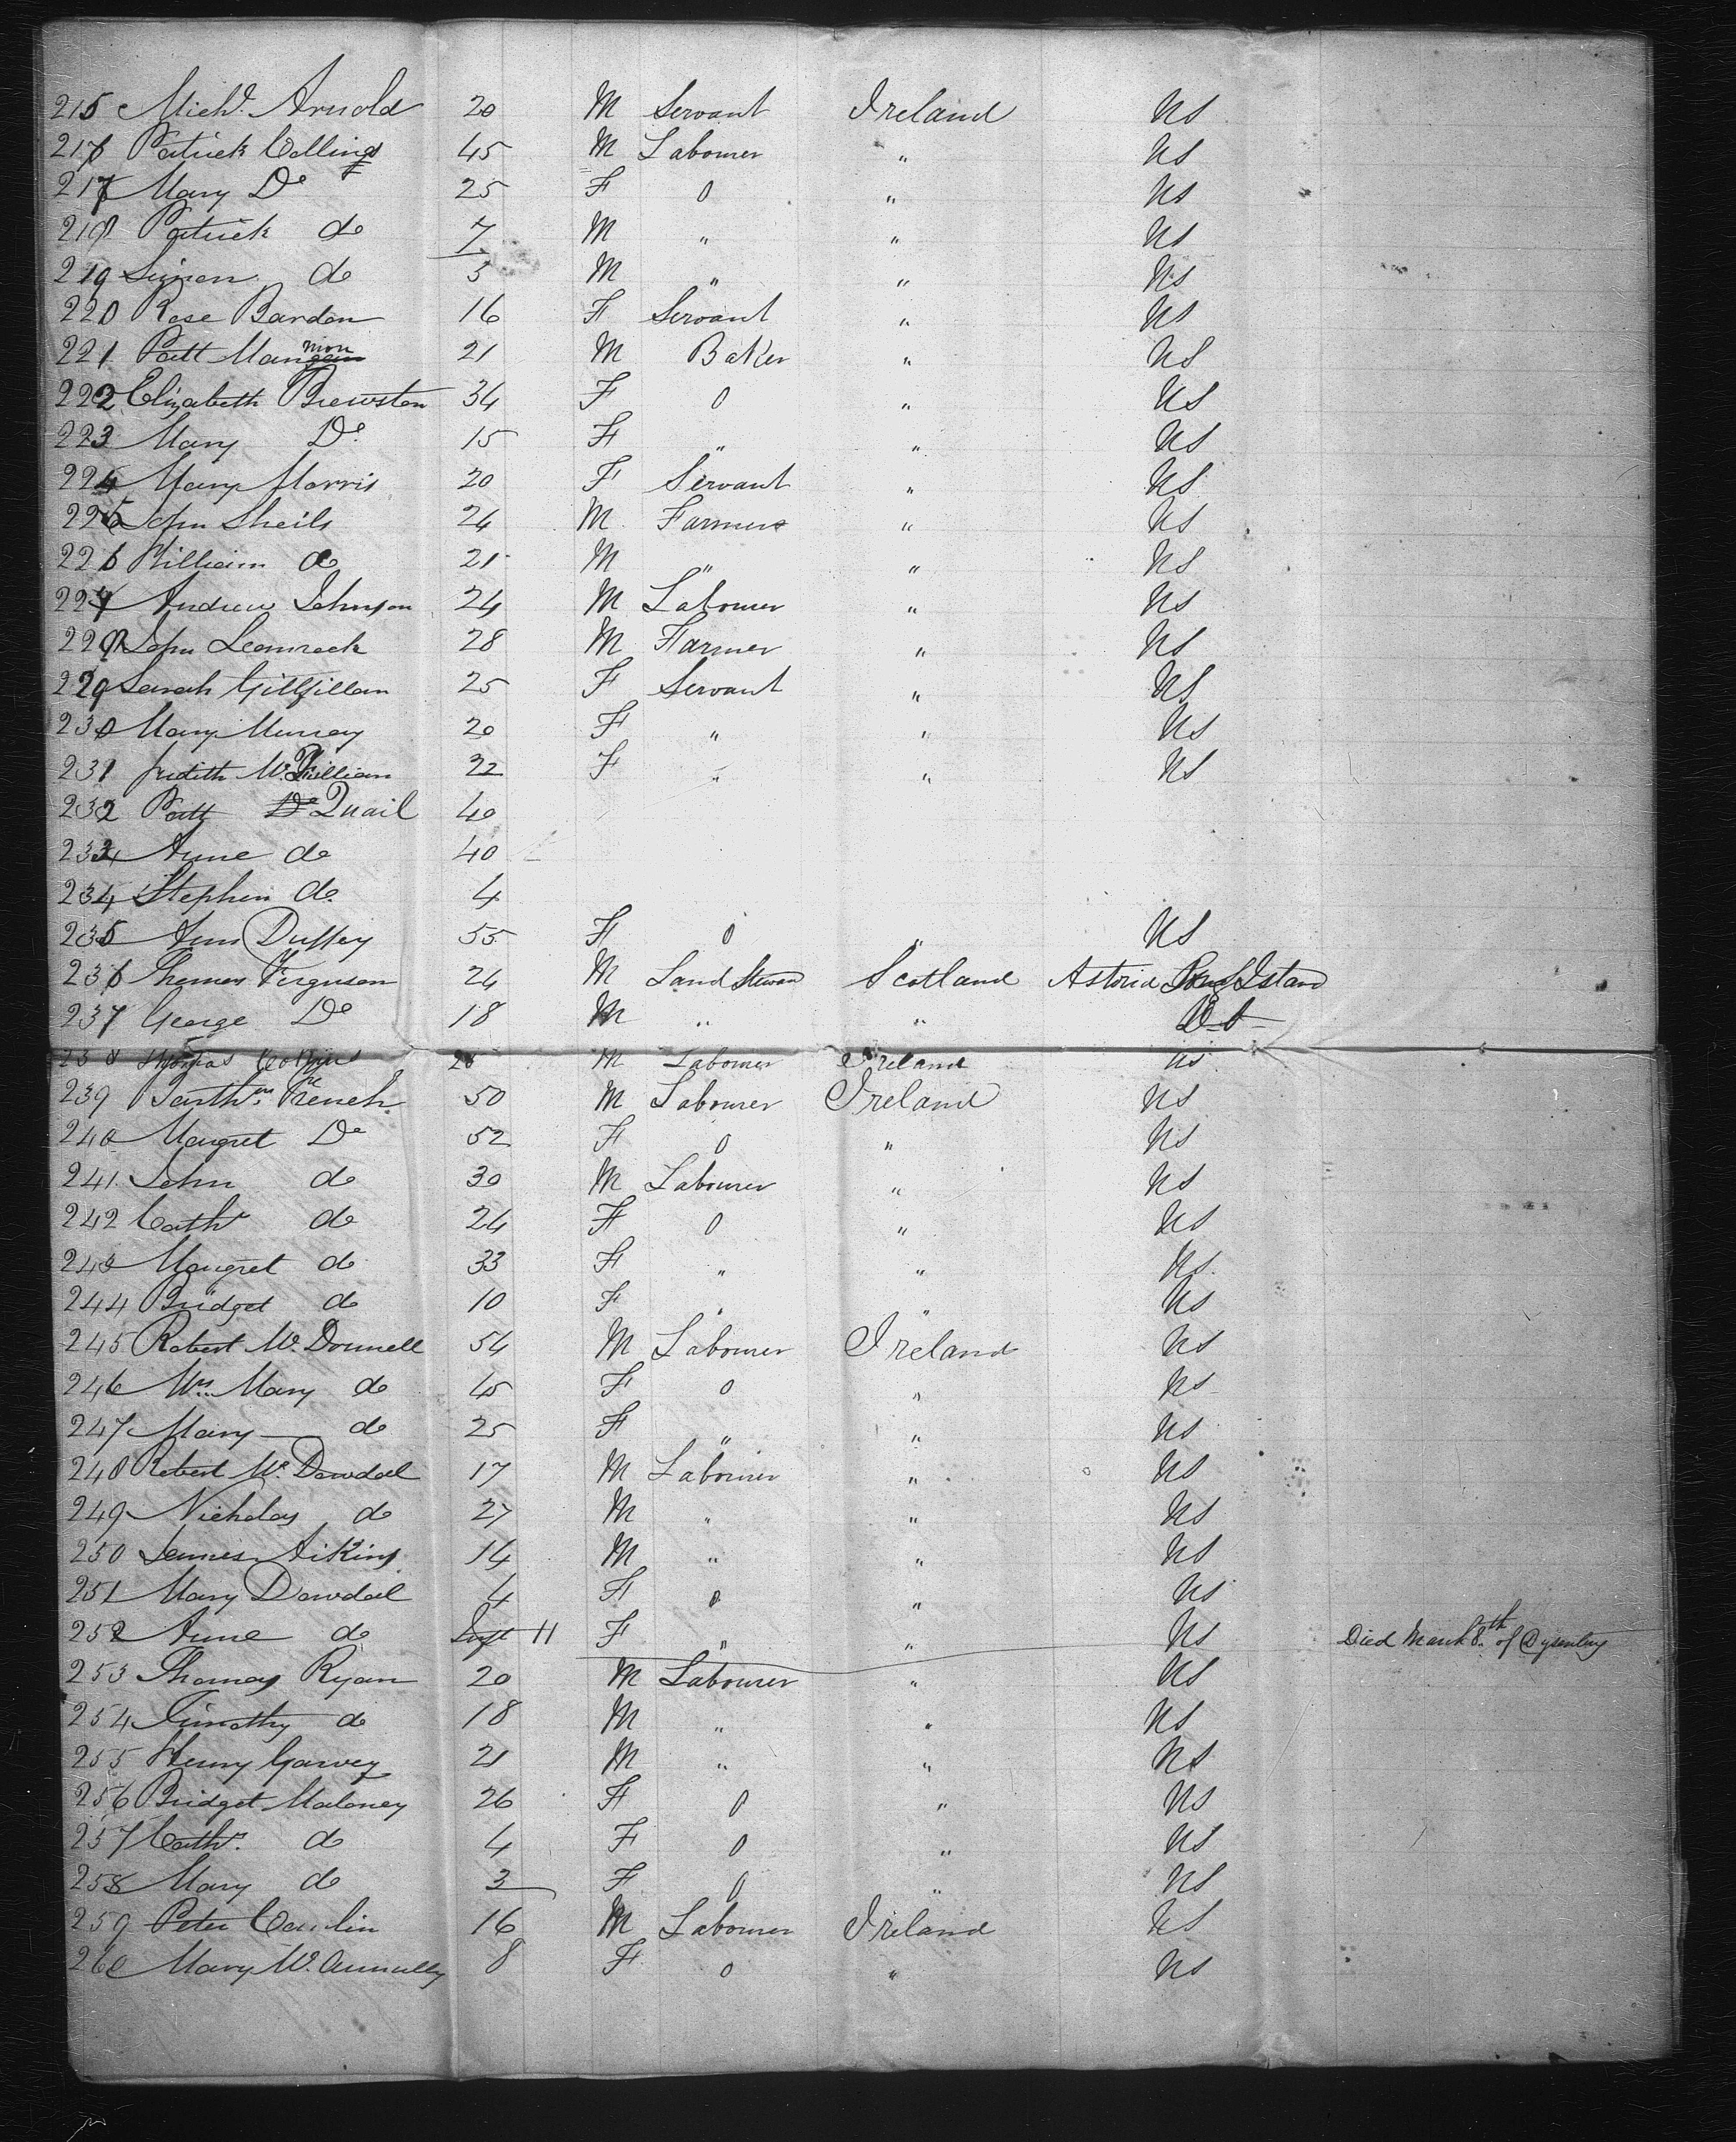 215 Michl. Arnold 20 M Servant Ireland US
216 Patrick Collins 45 M Labourer " US
217 Mary Do 25 F 0 " US
218 Patrick do 7 M " " US
219 Simon do 3 M " " US
220 Rose Bardon 16 F Servant " US
221 Patt Mannion 21 M Baker " US
222 Elizabeth Brewston 34 F 0 " US
223 Mary Do. 15 F " " US
224 Mary Morris 20 F Servant " US
225 John Sheils 24 M Farmer " US
226 William do 21 M " " US
227 Andrew Johnson 24 M Labourer " US
228 John 28 M Farmer " US
229 Sarah Gillfillan 25 F Servant " US
230 Mary Murray 20 F " " US
231 Judith McQuillian 22 F " " US
232 Patt Do Quail 40
233 Anne do 40
234 Stephen do. 4
235 Ann Duffey 55 F 0 " US
236 Thomas Ferguson 24 M Land Stewar Scotland Astoria Long Island
237 George Do 18 M " " Do
238 Thomas Collins 28 M Labourer Ireland US
239 Barthw. French 50 M Labourer Ireland US
240 Margret Do 52 F 0 " US
241 John do 30 M Labourer " US
242 Cathr do 24 F 0 " US
243 Margret do 33 F " " US
244 Bridget do 10 F " " US
245 Robert Mc.Donnell 54 M Labourer Ireland US
246 Mrs. Mary do 45 F 0 " US
247 Mary do 25 F " " US
248 Robert Mc Dowdal 17 M Labourer " US
249 Nicholas do 27 M " " US
250 James Aikins 14 M " " US
251 Mary Dowdal 4 F 0 " US
252 Anne do Inft 11 F " " US Died March 8.th of Dysentery
253 Thomas Ryan 20 M Labourer " US
254 Timothy do 18 M " " US
255 Henry Garvey 21 M " " US
256 Bridget Maloney 26 F 0 " US
257 Cathr. do 4 F 0 " US
258 Mary do 3 F 0 " US
259 Peter 16 M Labourer Ireland US
260 Mary Mc.Annully 8 F 0 " US